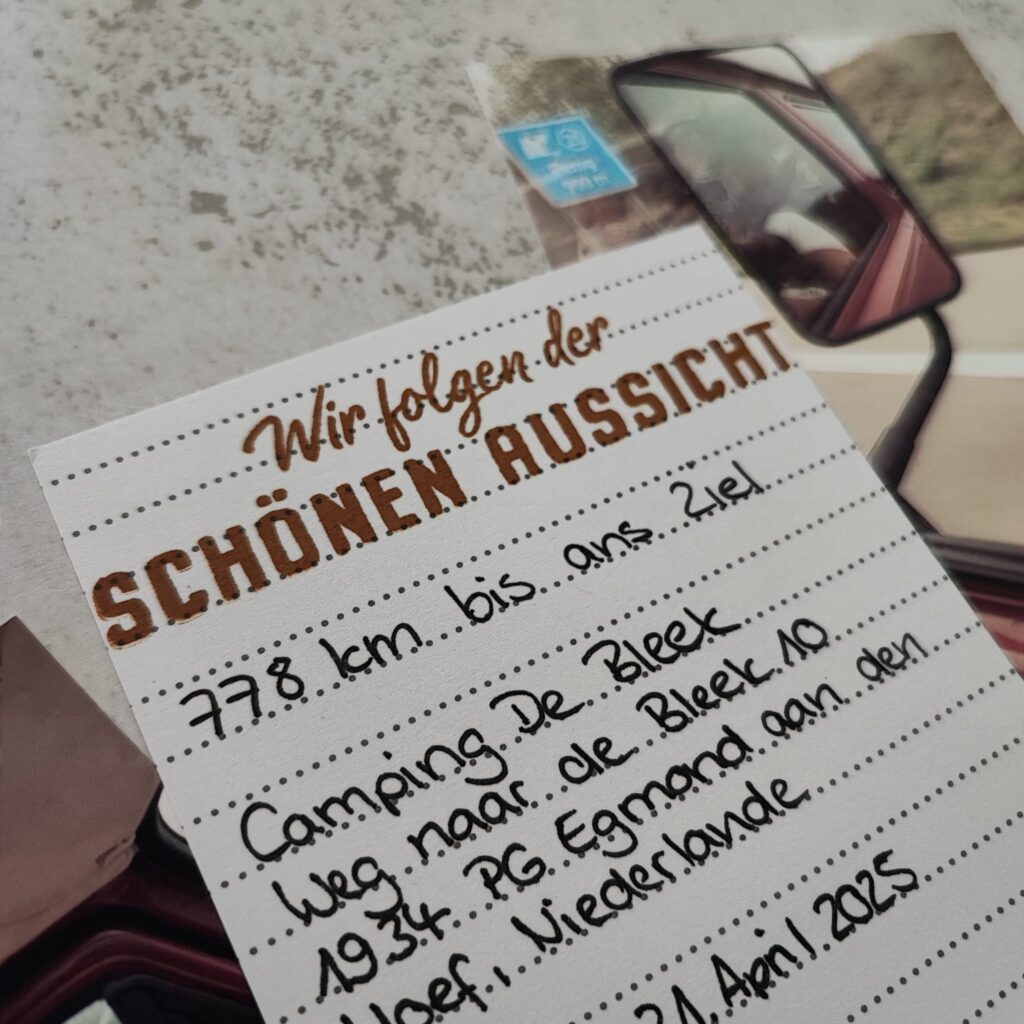 Wir folgen der
SCHÖNEN AUSSICHT
778 km bis ans Ziel
Camping De Bleek
Weg naar de Bleek 10
1934 PG Egmond aan den
Hoef, Niederlande
21. April 2025